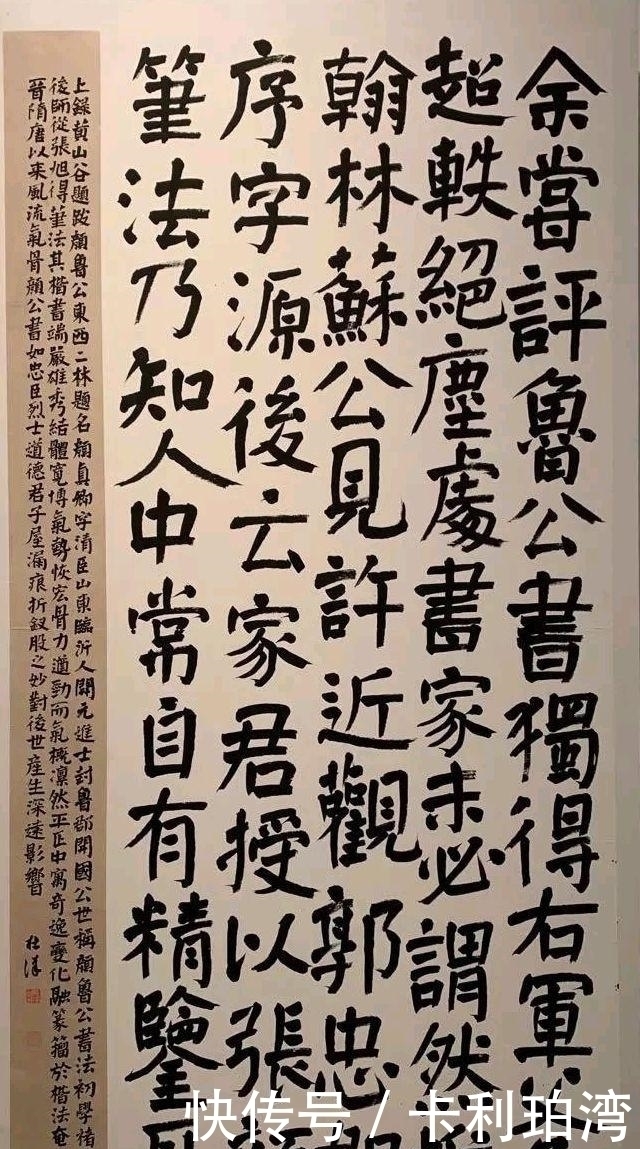 余嘗評魯公書獨得右軍
超軼絕塵處書家未必謂然
翰林蘇公見許近觀郭忠
序字源後云家君授以張
筆法乃知人中常自有精鑒
上錄黃山谷題跋顏魯公東西二林題名顏真卿字清臣山東臨沂人開元進士封魯郡開國公世稱顏魯公書法初學褚
後師從張旭得筆法其楷書端嚴雄秀結體寬博氣勢恢宏骨力遒勁而氣概凜然平正中寓奇逸變化融篆籀於楷法奄
晉隋唐以來風流氣骨顏公書如忠臣烈士道德君子屋漏痕折釵股之妙對後世產生深遠影響
快传号 / 卡利珀湾